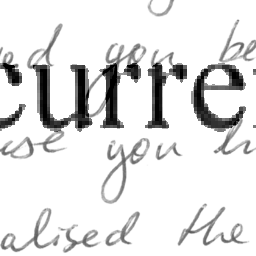 you be
curre
use you
alised the